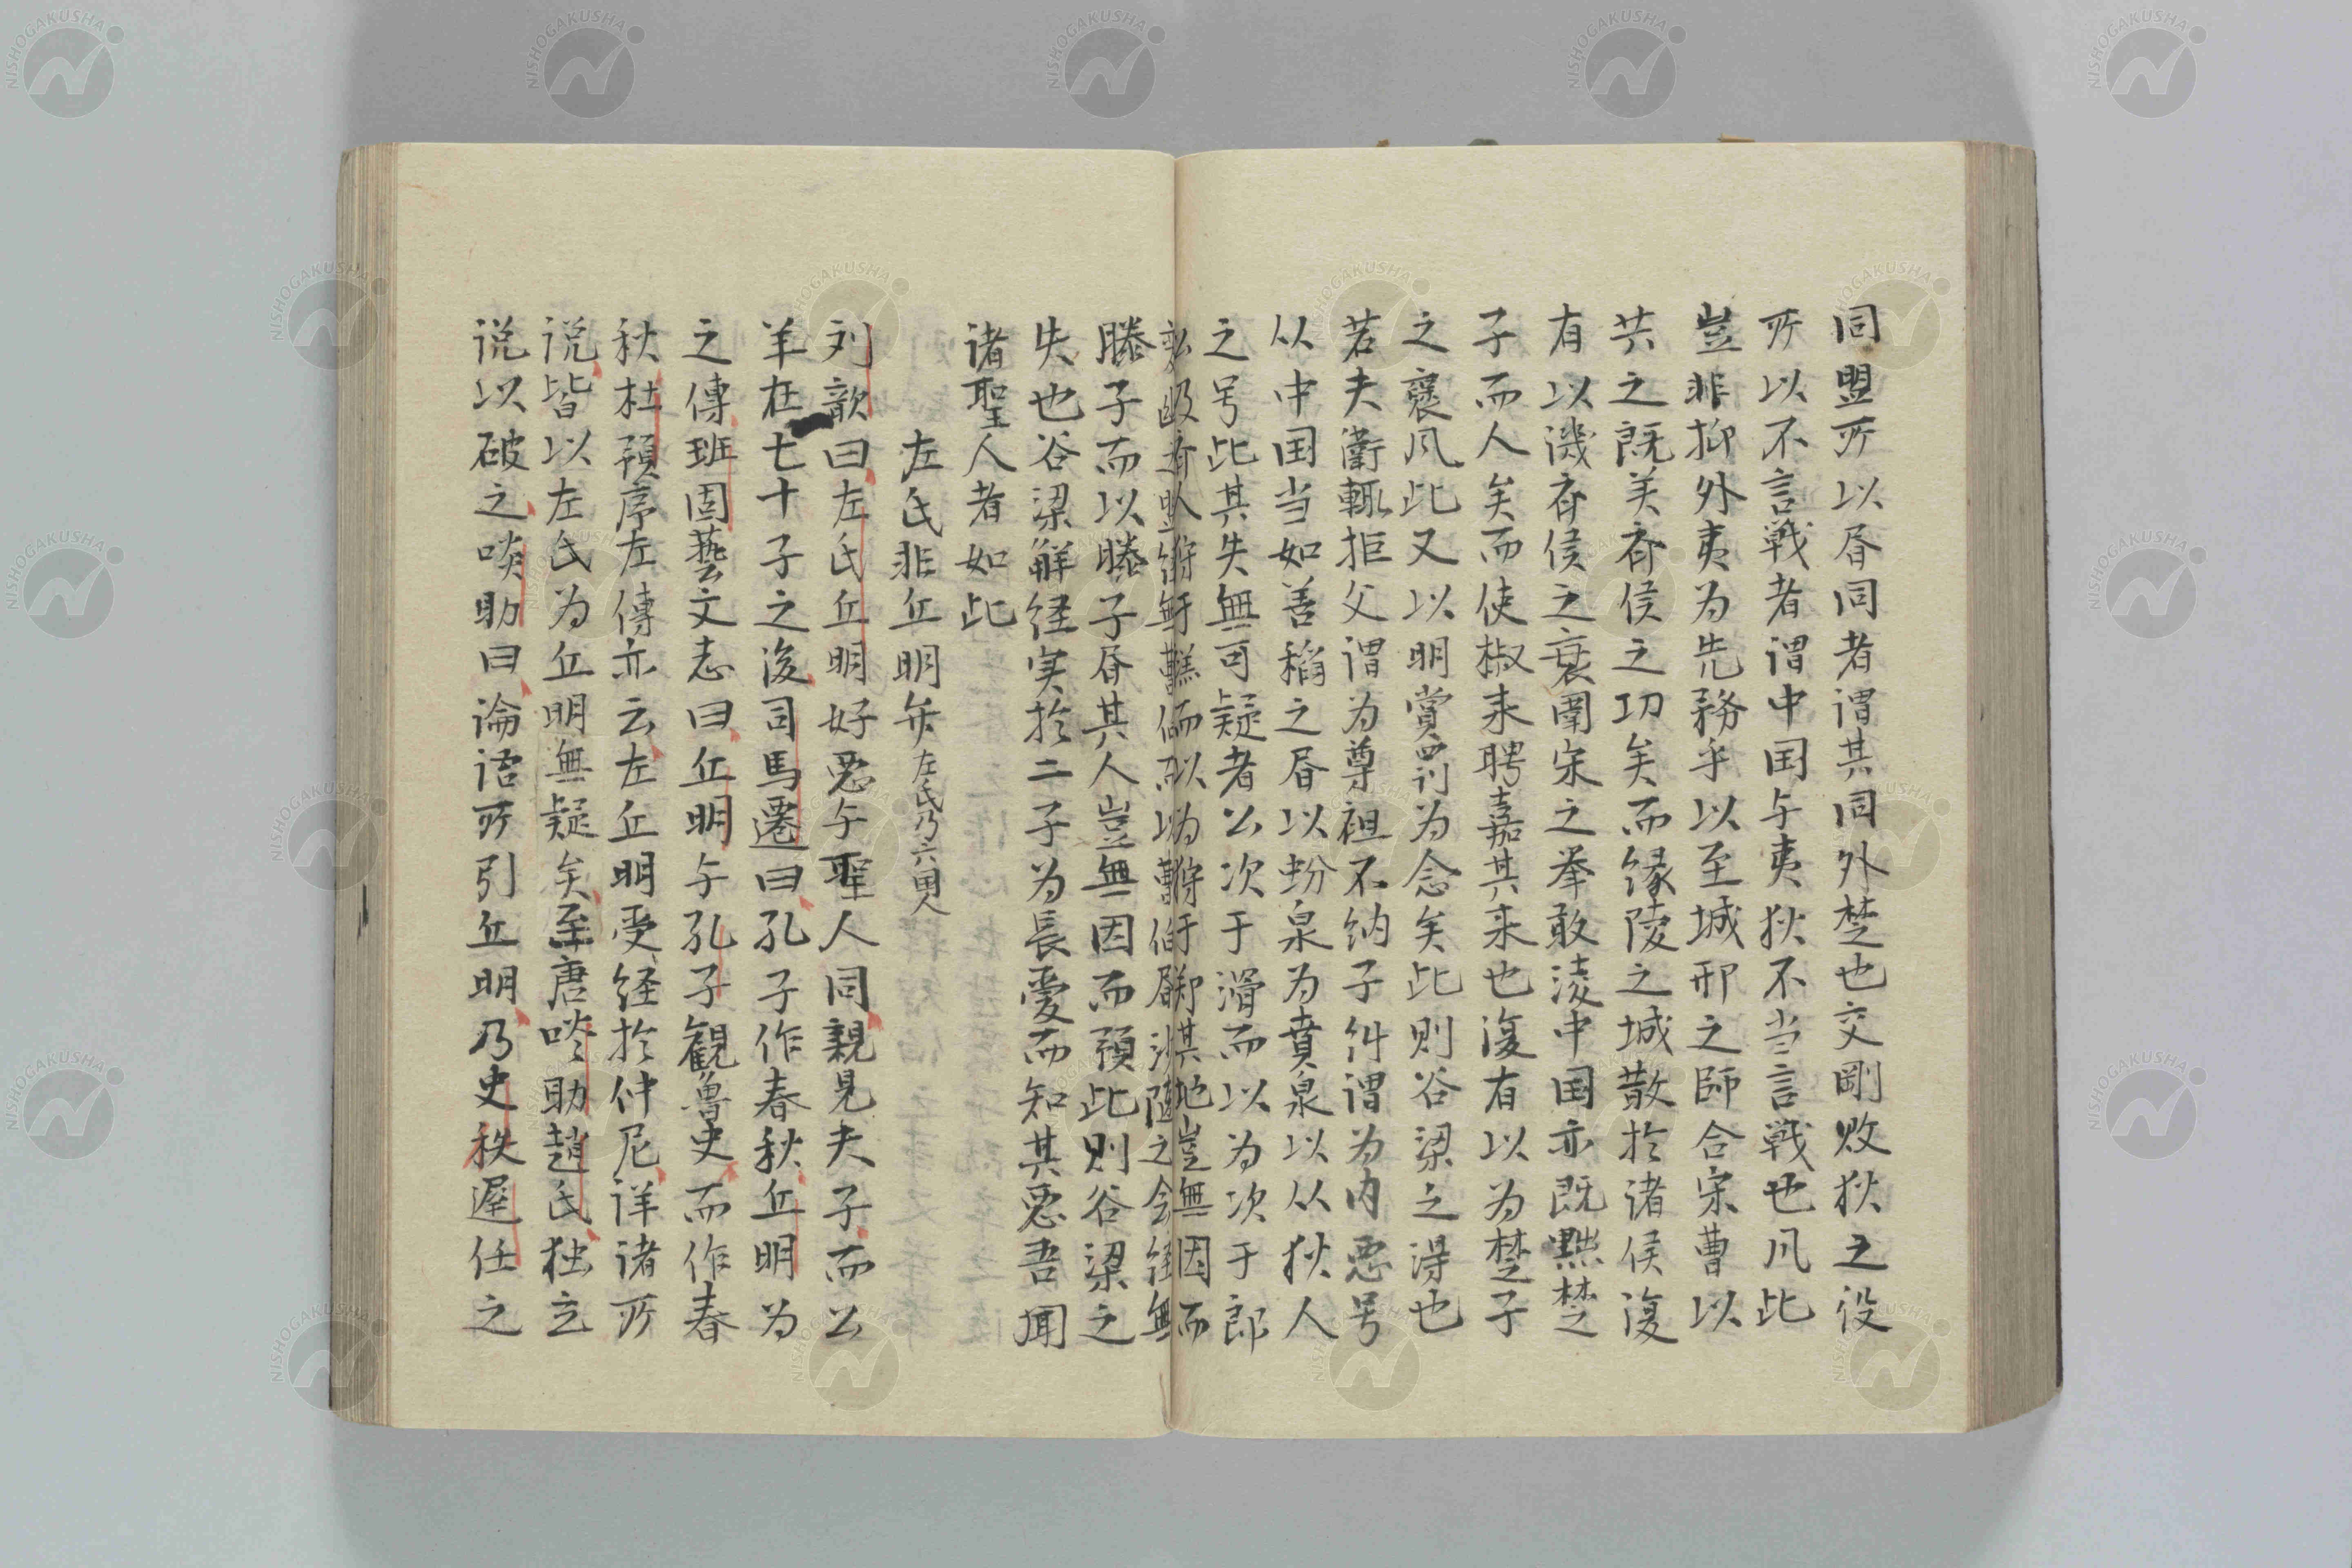 同盟所以昏同者謂其同外楚也交剛敗狄之役
所以不言戦者謂中国与夷狄不当言戦也凡此
豈非抑外夷为先務乎以至城邢之師合宋曹以
共之既美斉侯之功矣而縁陵之城散於诸侯復
有以譏斉侯之衰圍宋之挙敢淩中国亦既黜楚
子而人矣而使椒来聘嘉其来也復有以为楚子
之襃凡此又以明賞罰为念矣此則谷梁之淂也
若夫衛輒拒父謂为尊祖不纳子糾謂为内悪号
从中国当如善稻之昏以蚡泉为賁泉以从狄人
之号此其失無可疑者公次于滑而以为次于郎
地豈無因而
之会経無
滕子而以滕子昏其人豈無因而預此則谷梁之
失也谷梁解経実於二子为長愛而知其悪吾聞
诸聖人者如此
左氏非丘明弁左氏乃六国人
刘歆曰左氏丘明好悪与聖人同親見夫子而公
羊在七十子之後司馬遷曰孔子作春秋丘明为
之傳班固藝文志曰丘明与孔子観魯史而作春
秋杜預序左傳亦云左丘明受経於仲尼详诸所
说皆以左氏为丘明無疑矣至唐啖助趙氏独立
说以破之啖助曰論语所引丘明乃史秩遅任之